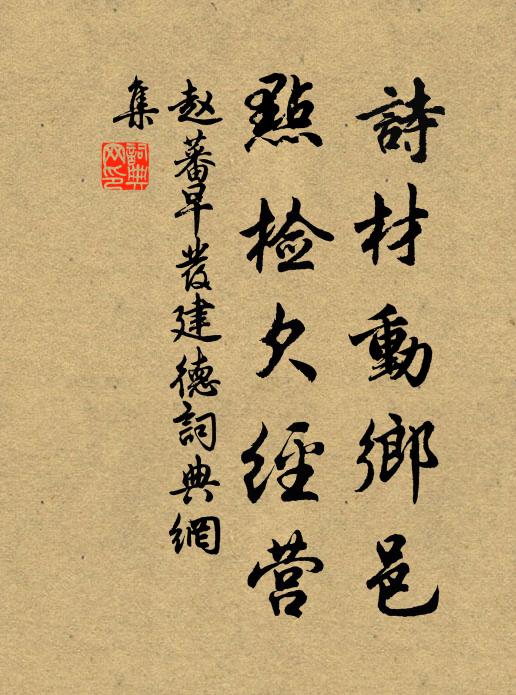 詩材動鄉邑
點檢欠經营
赵蕃早發建德詞典網
集
詞典
网印